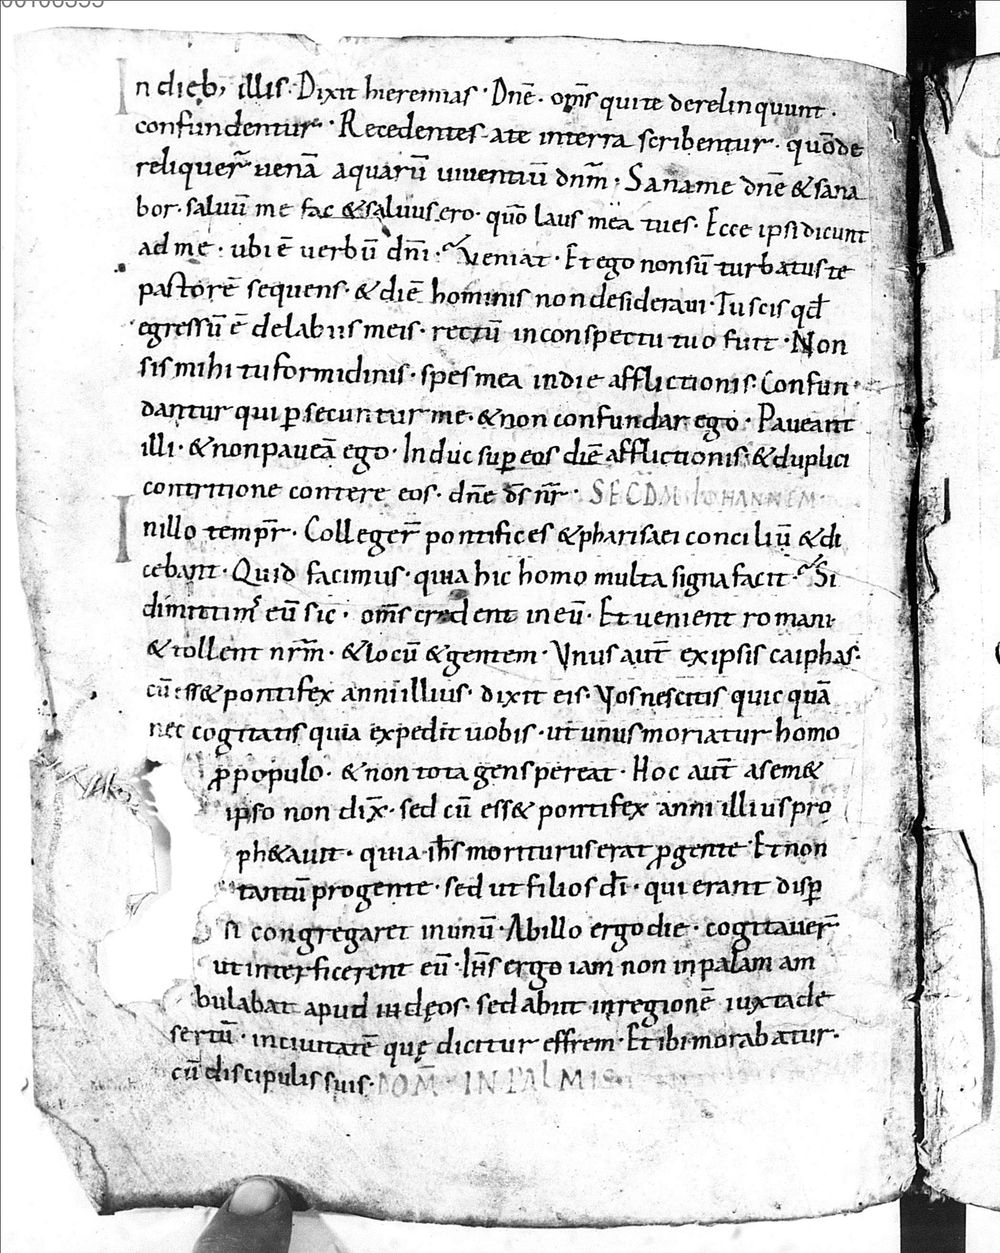 In dieb; illis. Dixit hieremias. Dnē. om̄s qui te derelinquunt.
confundentur. Recedentes a te in terra scribentur. quō de
reliquer̄ venā aquarū uiventiū dnm̄. Sana me dnē & sana
bor. saluū me fac & saluus ero. quō laus mea tu es. Ecce ipsi dicunt
ad me. ubi ē uerbū dn̄i. veniat. Et ego non sū turbatus te
pastorē sequens. & diē hominis non desideraui. Tu scis qđ
egressū ē de labiis meis. rectū in conspectu tuo fuit. Non
sis mihi tu formidinis. spes mea in die afflictionis. Confun
dantur qui ꝑsecuntur me. & non confundar ego. Paveant
illi. & non paueā ego. Induc suꝑ eos diē afflictionis. & duplici
contritione contere eos. dn̄e d̄s nr̄. SECDM IOHANNEM.
In illo tempr̄. Colleger̄ pontifices & pharisaei conciliū & di
cebant. Quid facimus. quia hic homo multa signa facit. Si
dimittim᾽ eū sic. om̄s credent in eū. Et uenient romani
& tollent nr̄m. & locū & gentem. Vnus aut̄ ex ipsis caiphas.
cū ess& pontifex anni illius. dixit eis. Vos nescitis quicquā
nec cogitatis quia expedit uobis. ut unus moriatur homo
ꝓ populo. & non tota gens pereat. Hoc aut̄ a sem&
ipso non dix̄. sed cū ess& pontifex anni illius pro
ph&auit. quia ih̄s moriturus erat ꝓ gente. Et non
tantū pro gente. sed ut filios dī. qui erant disꝑ
si congregaret in unū. Ab illo ergo die. cogitauer̄
ut interficerent eū. Ih̄s ergo iam non in palam am
bulabat apud iudęos. sed abiit in regionē iuxta de
sertū. in ciuitatē quę dicitur effrem. Et ibi morabatur.
cū discipulis suis. DOM̄ IN PALMIS